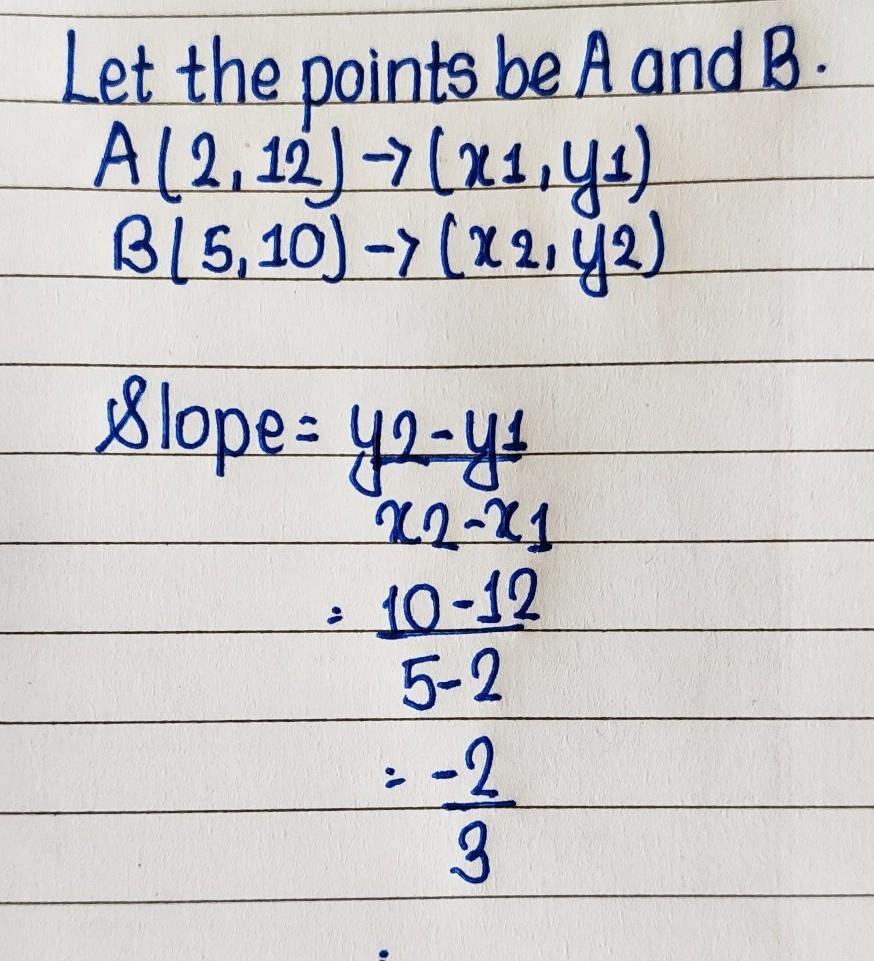 Let the points be A and B.
A(2,12)→(x1,y1)
B(5,10)→(x2,y2)
Slope= y2-y1
x2-x1
= 10-12
5-2
= -2
3